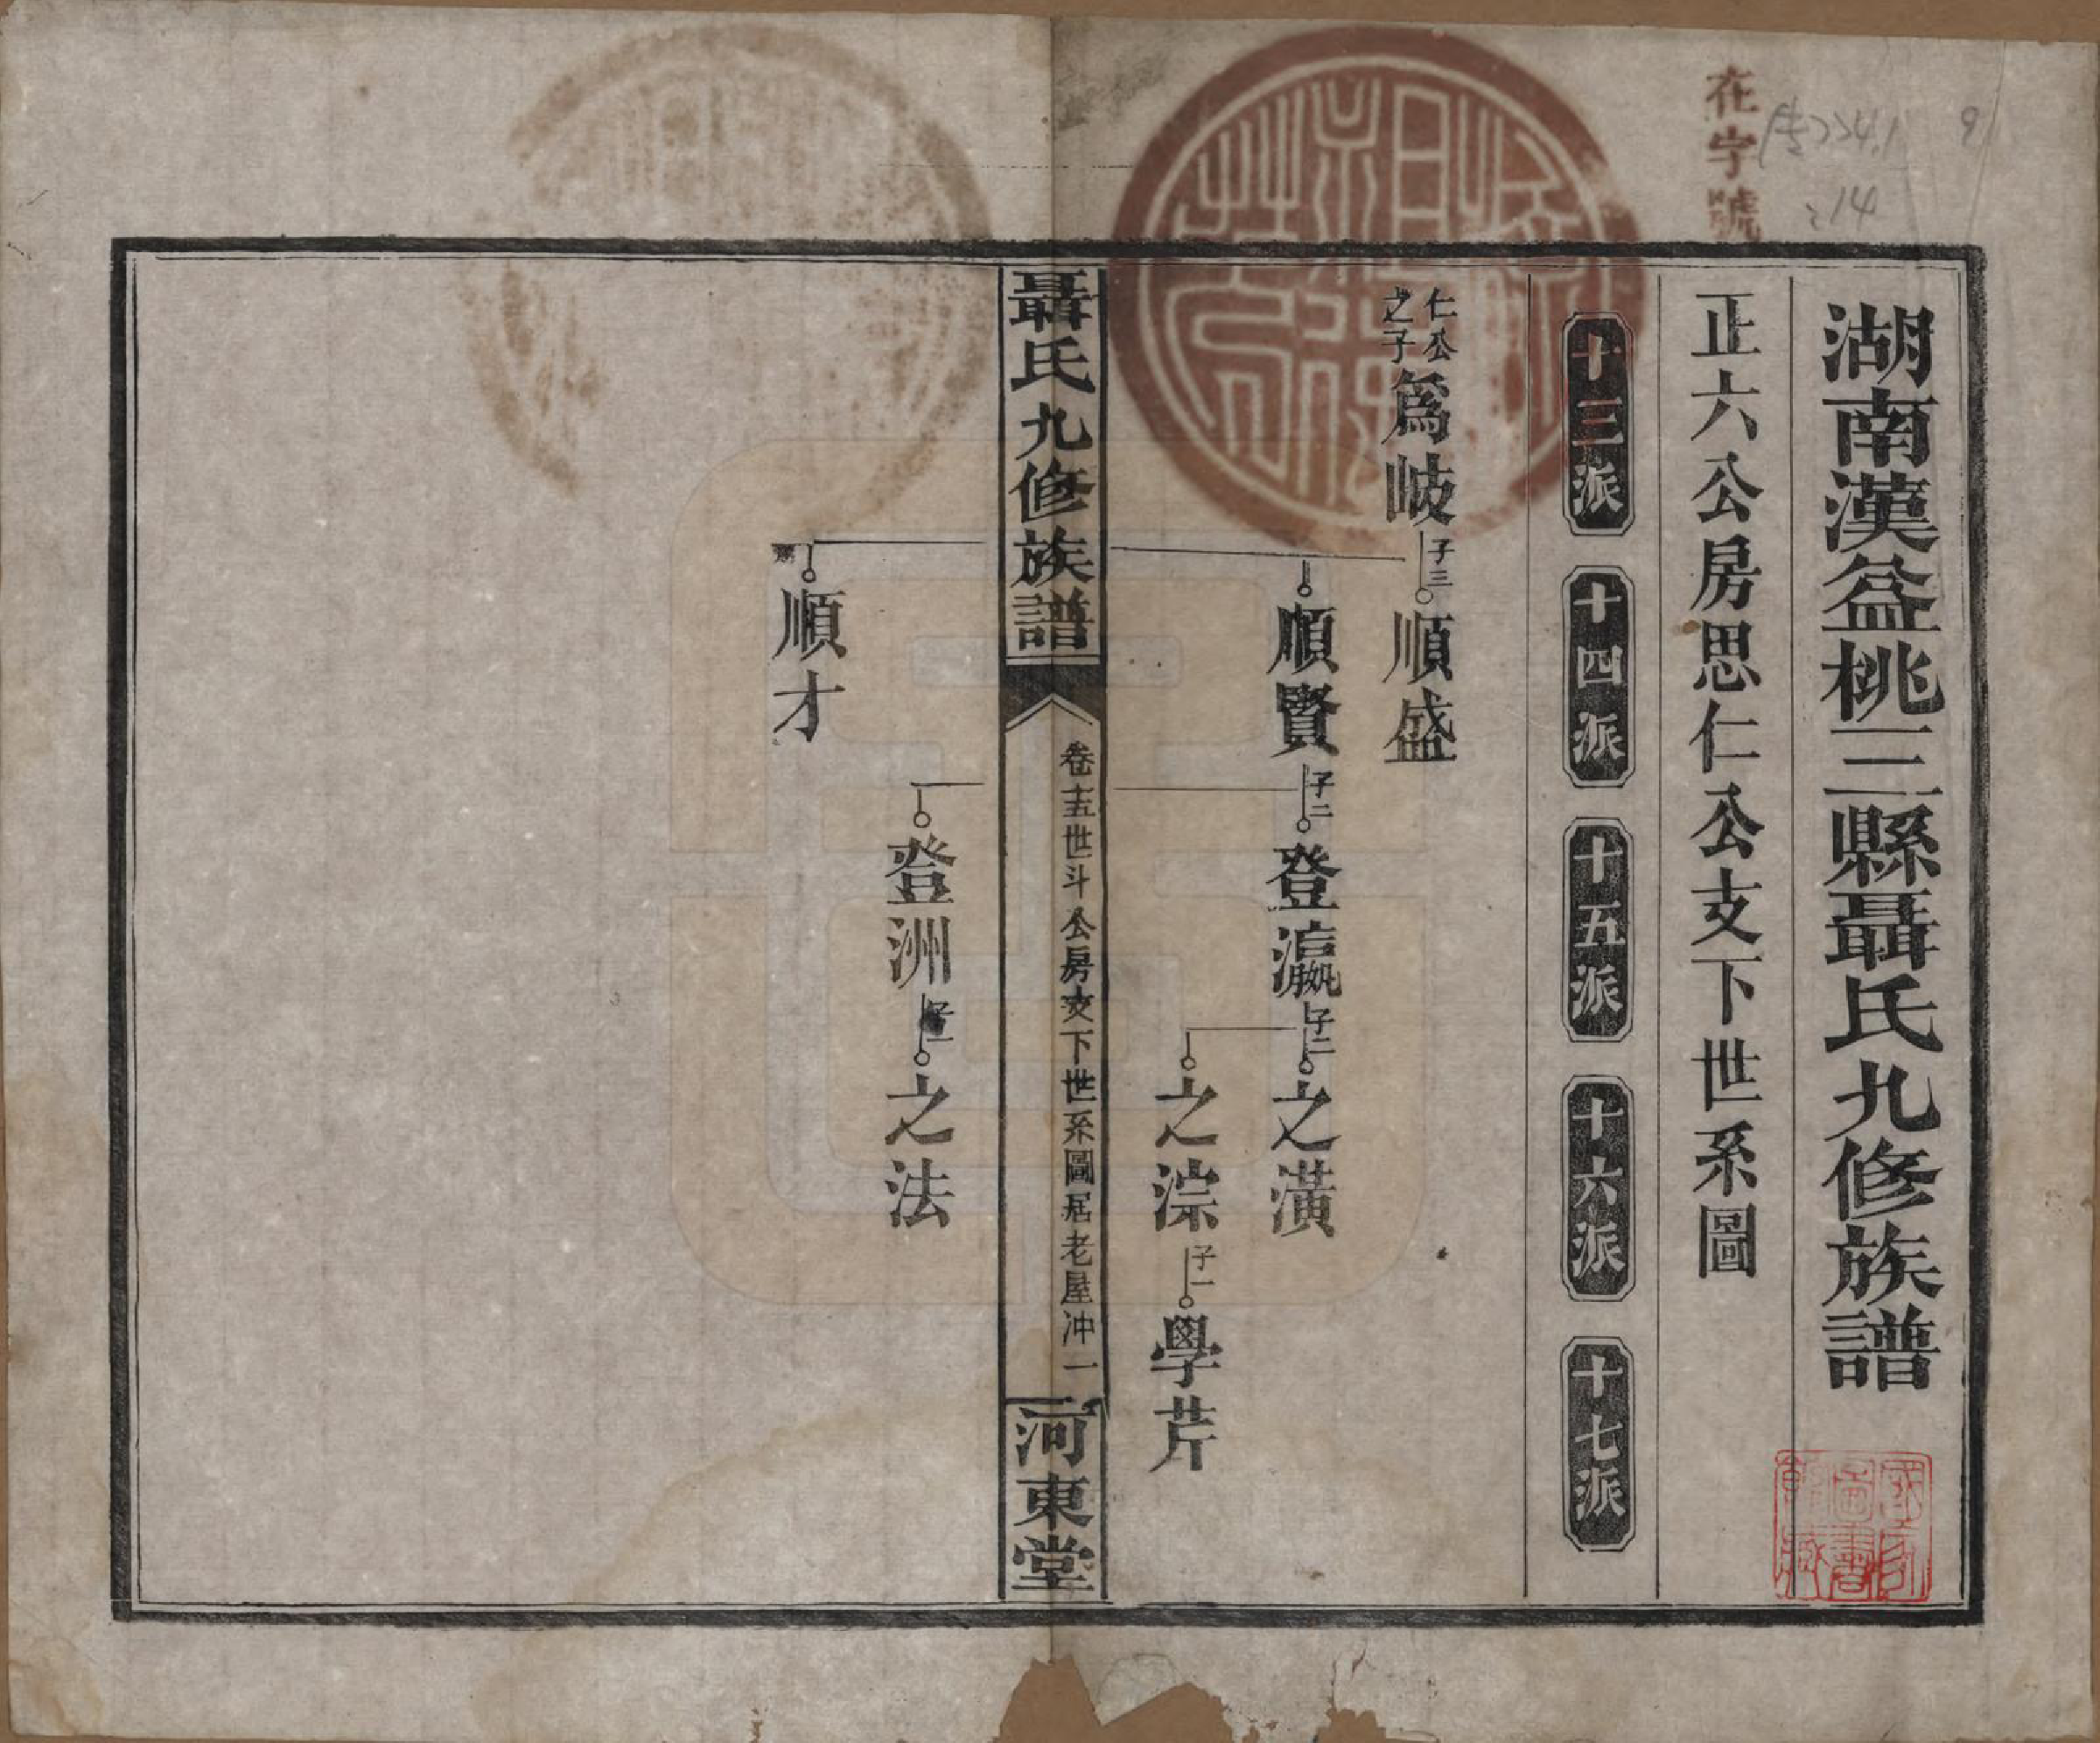 在字號
湖南漢益桃三縣聶氏九修族譜
正六公房思仁公支下世系圖
十三派
十四派
十五派
十六派
十七派
仁公之子
爲岐
子三
順盛
順賢
子二
登瀛
子二
之潢
之淙
子一
學芹
聶氏九修族譜
卷十五世斗公房支下世系圖居老屋冲一
河東堂
登洲
子一
之法
順才
國家圖書館藏